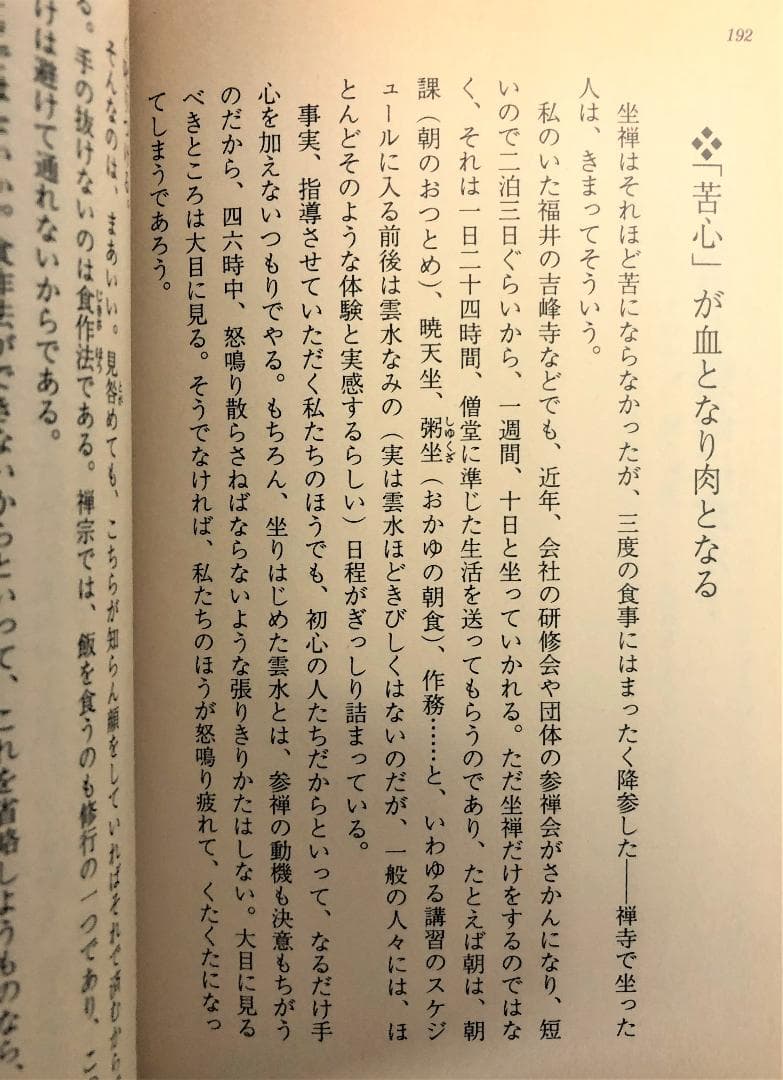 192
❖「苦心」が血となり肉となる
坐禅はそれほど苦にならなかったが、三度の食事にはまったく降参した――禅寺で坐った
人は、きまってそういう。
私のいた福井の吉峰寺などでも、近年、会社の研修会や団体の参禅会がさかんになり、短
いので二泊三日ぐらいから、一週間、十日と坐っていかれる。ただ坐禅だけをするのではな
く、それは一日二十四時間、僧堂に準じた生活を送ってもらうのであり、たとえば朝は、朝
課（朝のおつとめ）、暁天坐、粥坐（おかゆの朝食）、作務……と、いわゆる講習のスケジ
ュールに入る前後は雲水なみの（実は雲水ほどきびしくはないのだが、一般の人々には、ほ
とんどそのような体験と実感するらしい）日程がぎっしり詰まっている。
事実、指導させていただく私たちのほうでも、初心の人たちだからといって、なるだけ手
心を加えないつもりでやる。もちろん、坐りはじめた雲水とは、参禅の動機も決意もちがう
のだから、四六時中、怒鳴り散らさねばならないような張りきりかたはしない。大目に見る
べきところは大目に見る。そうでなければ、私たちのほうが怒鳴り疲れて、くたくたになっ
てしまうであろう。
そんなのは、まあいい。見咎めても、こちらが知らん顔をしていればそれで済むから
る。手の抜けないのは食作法である。禅宗では、飯を食うのも修行の一つであり、こ
けは避けて通れないからである。
食作法ができないからといって、これを省略しようものなら、